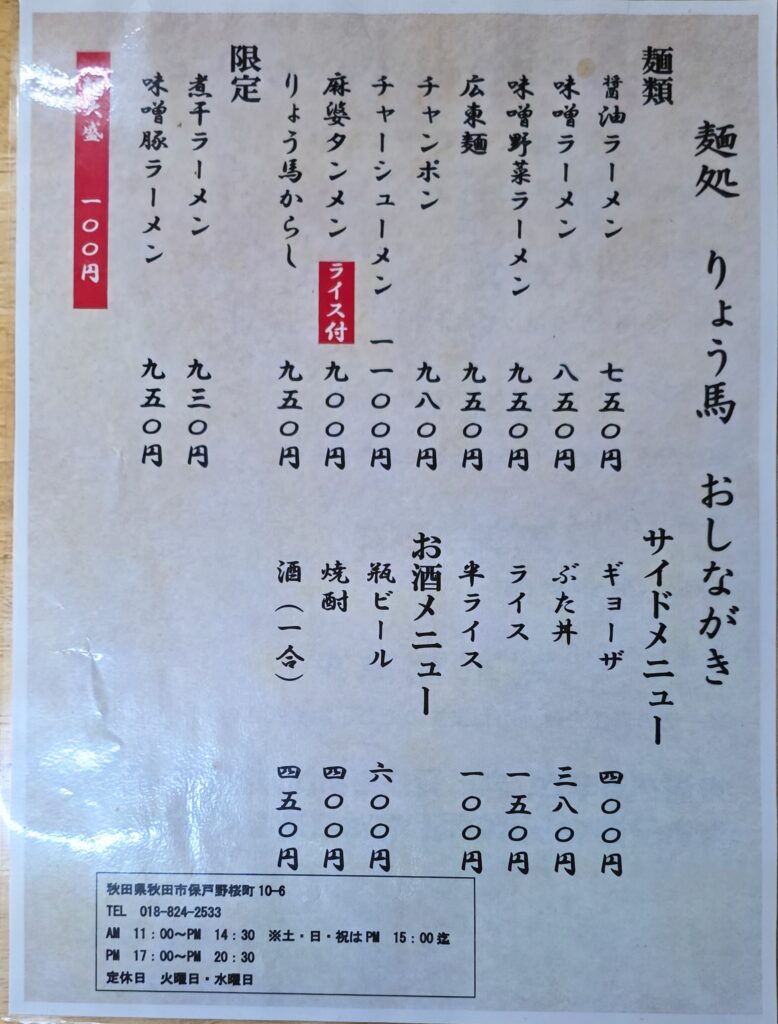 麺処 りょう馬 おしながき
麺類
醤油ラーメン 七五〇円
味噌ラーメン 八五〇円
味噌野菜ラーメン 九五〇円
広東麺 九五〇円
チャンポン 九八〇円
チャーシューメン 一一〇〇円
麻婆タンメン ライス付 九〇〇円
りょう馬からし 九五〇円
限定
煮干ラーメン 九三〇円
味噌豚ラーメン 九五〇円
大盛 一〇〇円
サイドメニュー
ギョーザ 四〇〇円
ぶた丼 三八〇円
ライス 一五〇円
半ライス 一〇〇円
お酒メニュー
瓶ビール 六〇〇円
焼酎 四〇〇円
酒(一合) 四五〇円
秋田県秋田市保戸野桜町10-6
TEL 018-824-2533
AM 11:00~PM 14:30 ※土・日・祝はPM 15:00迄
PM 17:00~PM 20:30
定休日 火曜日・水曜日